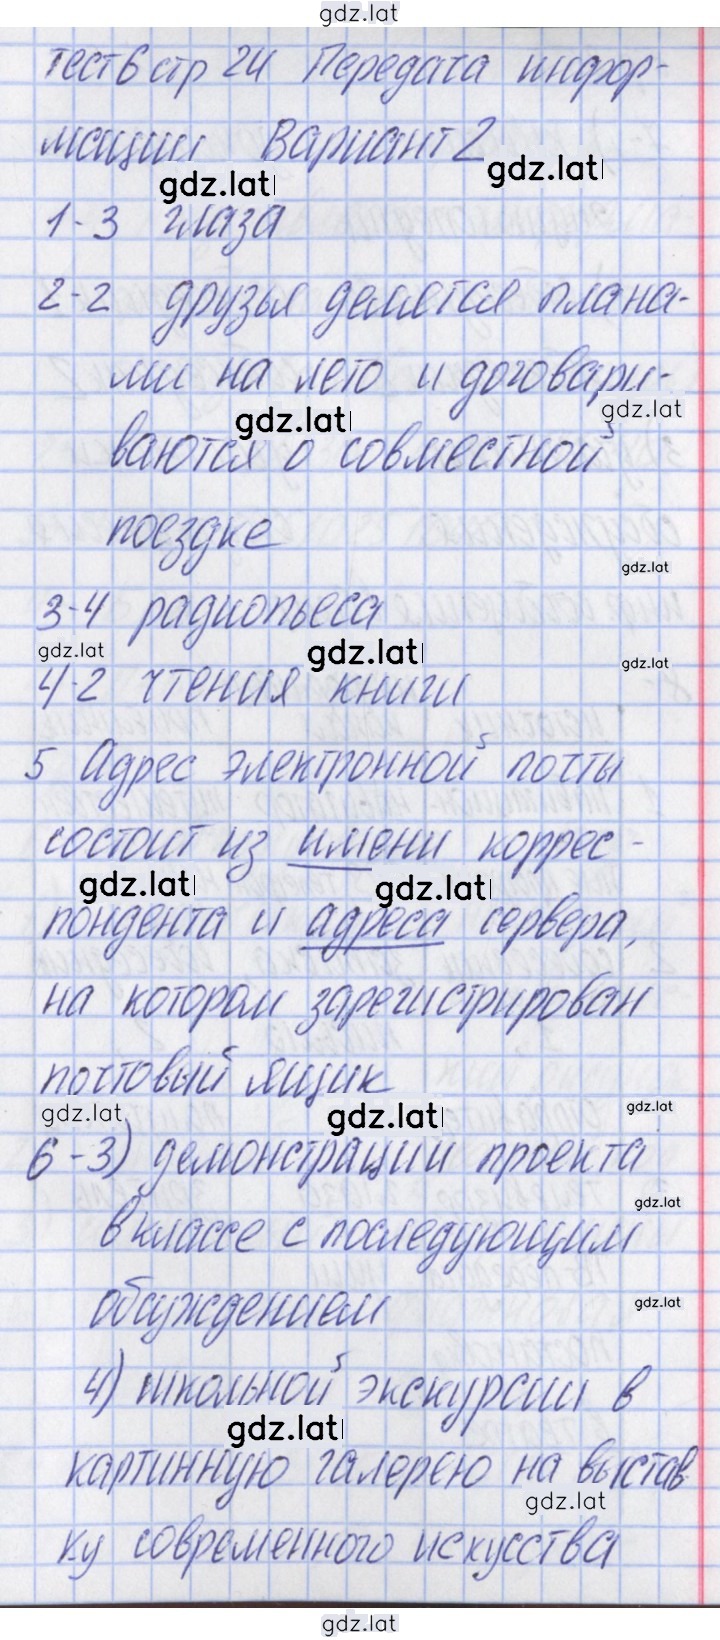 gdz.lat
тест 6 стр 24 Передача инфор-
мации Вариант 2
gdz.lat
gdz.lat
1-3 глаза
2-2 друзья делятся плана-
ми на лето и договари-
gdz.lat
gdz.lat
ваются о совместной
поездке
gdz.lat
3-4 радиопьеса
gdz.lat
gdz.lat
gdz.lat
4-2 чтения книги
5 Адрес электронной почты
состоит из имени коррес-
gdz.lat
gdz.lat
пондента и адреса сервера,
на котором зарегистрирован
почтовый ящик
gdz.lat
gdz.lat
gdz.lat
6-3) демонстрации проекта
gdz.lat
в классе с последующим
обсуждением
gdz.lat
4) школьной экскурсии в
gdz.lat
картинную галерею на выстав-
gdz.lat
ку современного искусства
gdz.lat